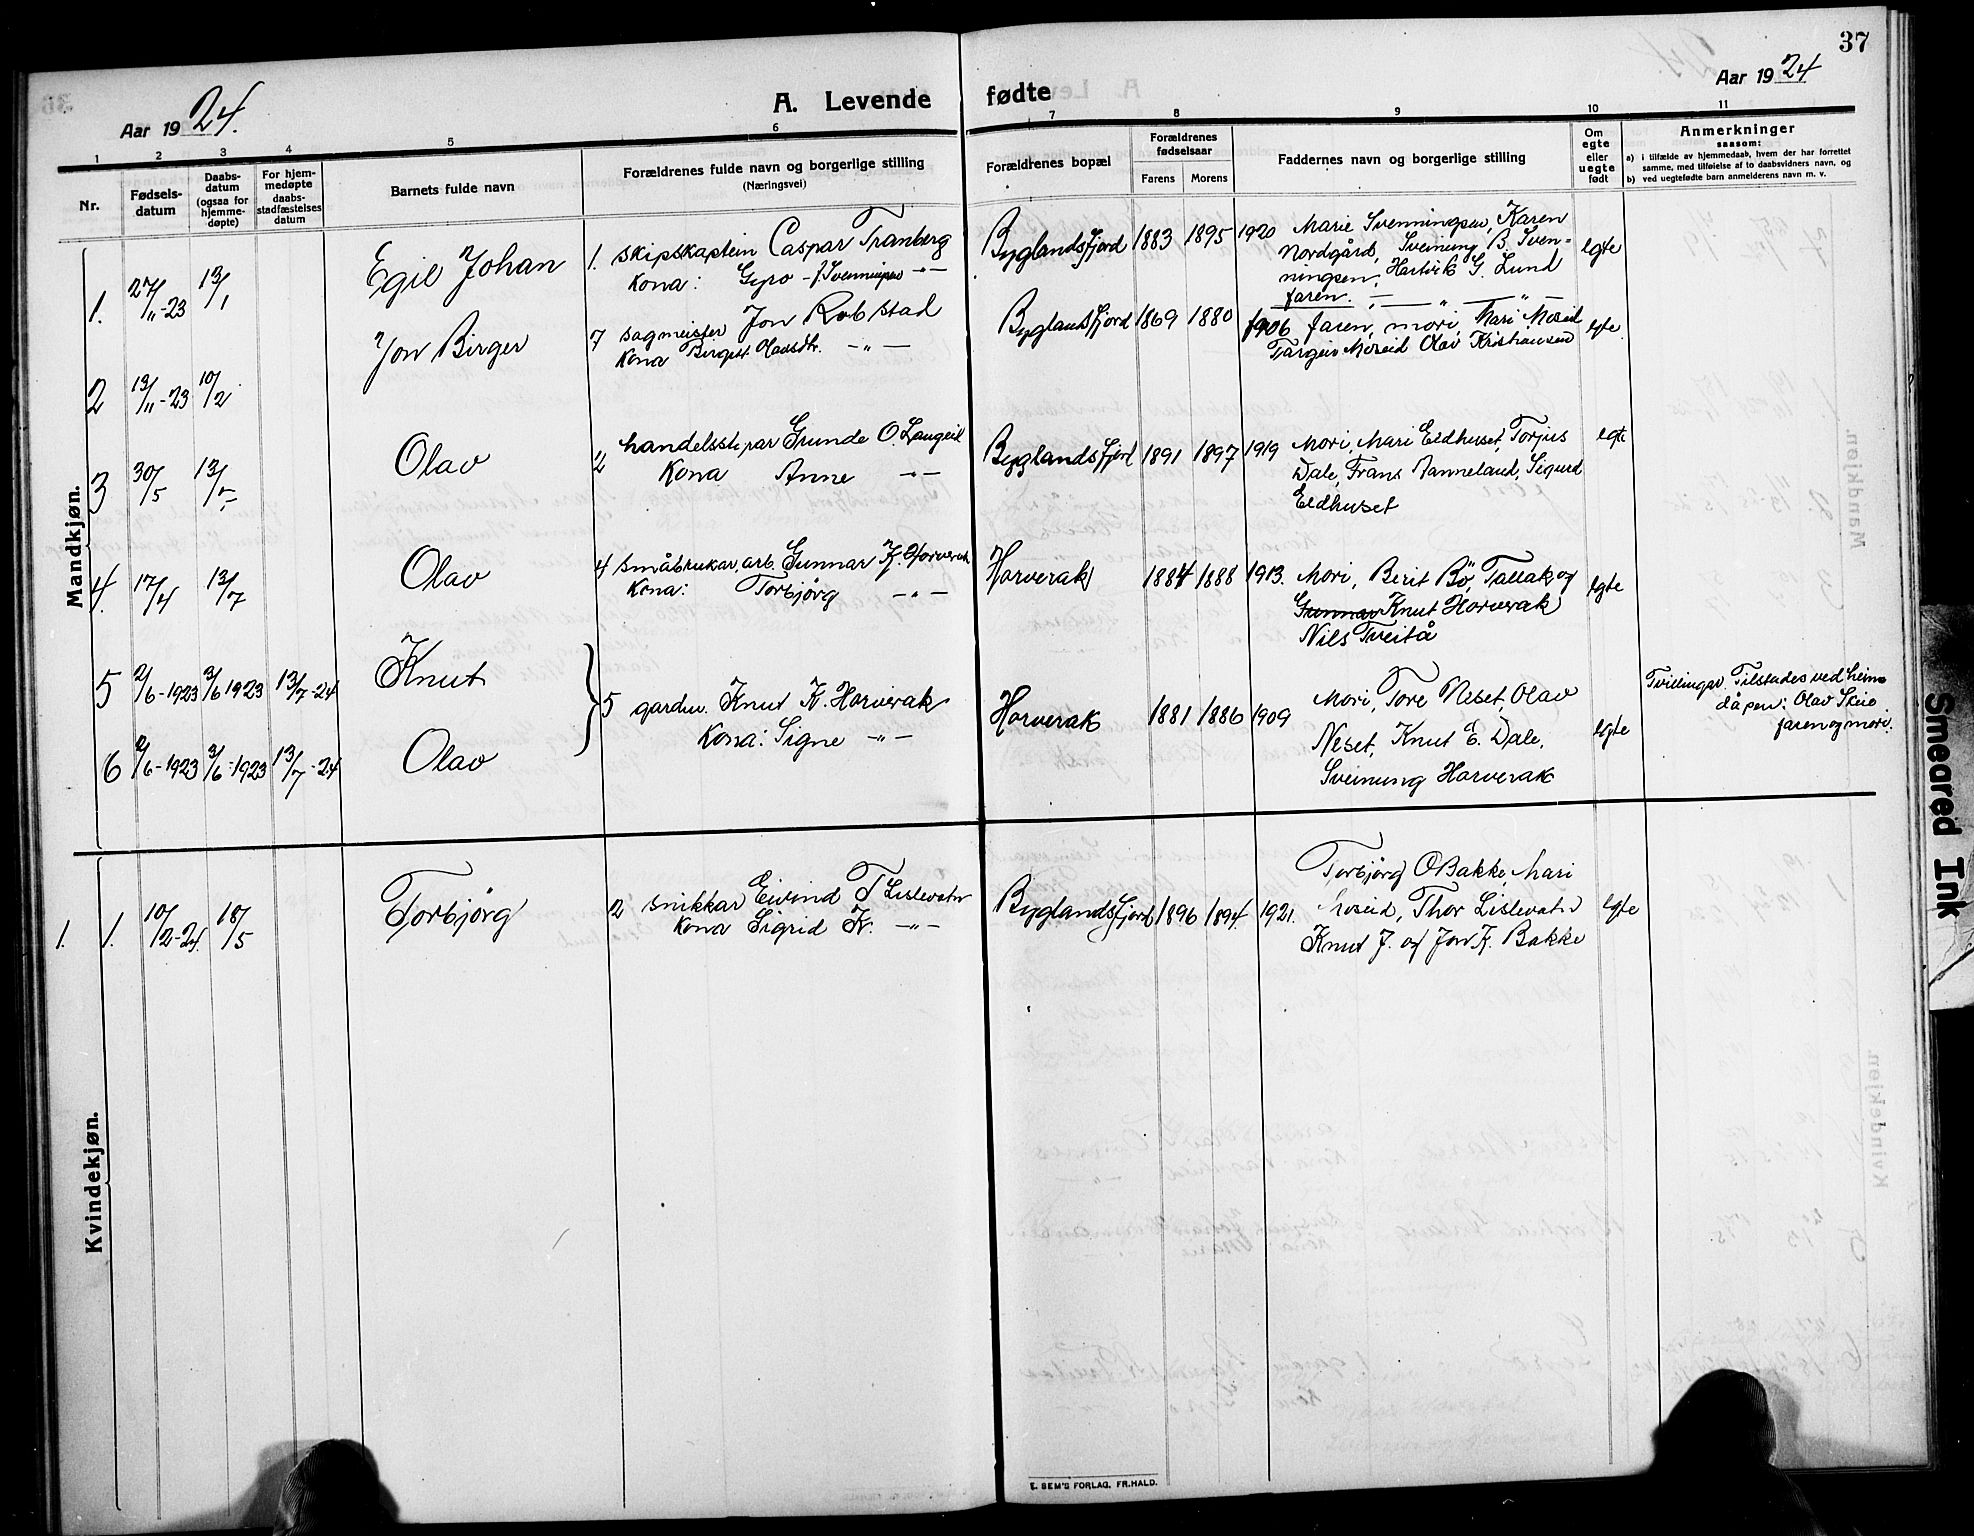 37
Aar 1924.
A. Levende fødte
Aar 1924
1 2 3 4 5 6 7 8 9 10 11
Nr.
Fødsels-
datum
Daabs-
datum
(ogsaa for
hjemme-
døpte)
For hjem-
medøpte
daabs-
stadfæstelses
datum
Barnets fulde navn
Forældrenes fulde navn og borgerlige stilling
(Næringsvei)
Forældrenes bopæl
Forældrenes
fødselsaar
Farens Morens
Faddernes navn og borgerlige stilling
Om
egte
eller
uegte
født
Anmerkninger
saasom:
a) i tilfælde av hjemmedaab, hvem der har forrettet
samme, med tilføielse af to daabsvidners navn, og
b) ved uegtefødte barn anmelderens navn m. v.
Mandkjøn.
1. 27/11-23 13/1 Egil Johan 1. skipskaptein Caspar Tranberg
Kona: Gyro - f. Svenningsen -"-
Byglandsfjord 1883 1895 1920 Marie Svenningsen, Karen
Nordgård, Sveinung B. Sven-
ningsen, Hartvik G. Lund
faren. egte
2 13/11-23 10/2 Jon Birger 7 sagmeister Jon Robstad
Kona Birgit Olavsdtr. -"-
Byglandsfjord 1869 1880 1906 faren, mori, Mari Moseid
Targeir Moseid Olav Kristiansen egte
3 30/5 13/7 Olav 2 handelsstyrar Grunde O. Langeid
Kona Anne -"-
Byglandsfjord 1891 1897 1919 Mori, Mari Eldhuset, Torjus
Dale, Frans Nanneland, Sigurd
Eldhuset egte
4. 17/4 13/7 Olav 4 småbrukar, arb. Gunnar K. Horverak
Kona: Torbjørg -"-
Horverak 1884 1888 1913. Mori, Berit Bø, Tallak og
Gunnar Knut Horverak
Nils Tveitå egte
5 2/6-1923 3/6 1923 13/7-24 Knut
5 gardm. Knut K. Horverak
Kona: Signe -"-
Horverak 1881 1886 1909 Mori, Tore Neset, Olav
Neset, Knut E. Dale,
Sveinung Horverak egte
Tvillingar. Tilstades ved heim
dåpen: Olav Skeie
faren og mori.
6 2/6-1923 3/6-1923 13/7-24 Olav
Kvindekjøn.
1. 1. 10/2-24. 18/5 Torbjørg 2 snikkar Eivind T Lislevatn
Kona Sigrid K. -"-
Byglandsfjord 1896 1894. 1921. Torbjørg O Bakke, Mari
Moseid, Thor Lislevatn
Knut J. og Jon K. Bakke egte
E. SEM'S FORLAG, FR.HALD.
Smeared Ink